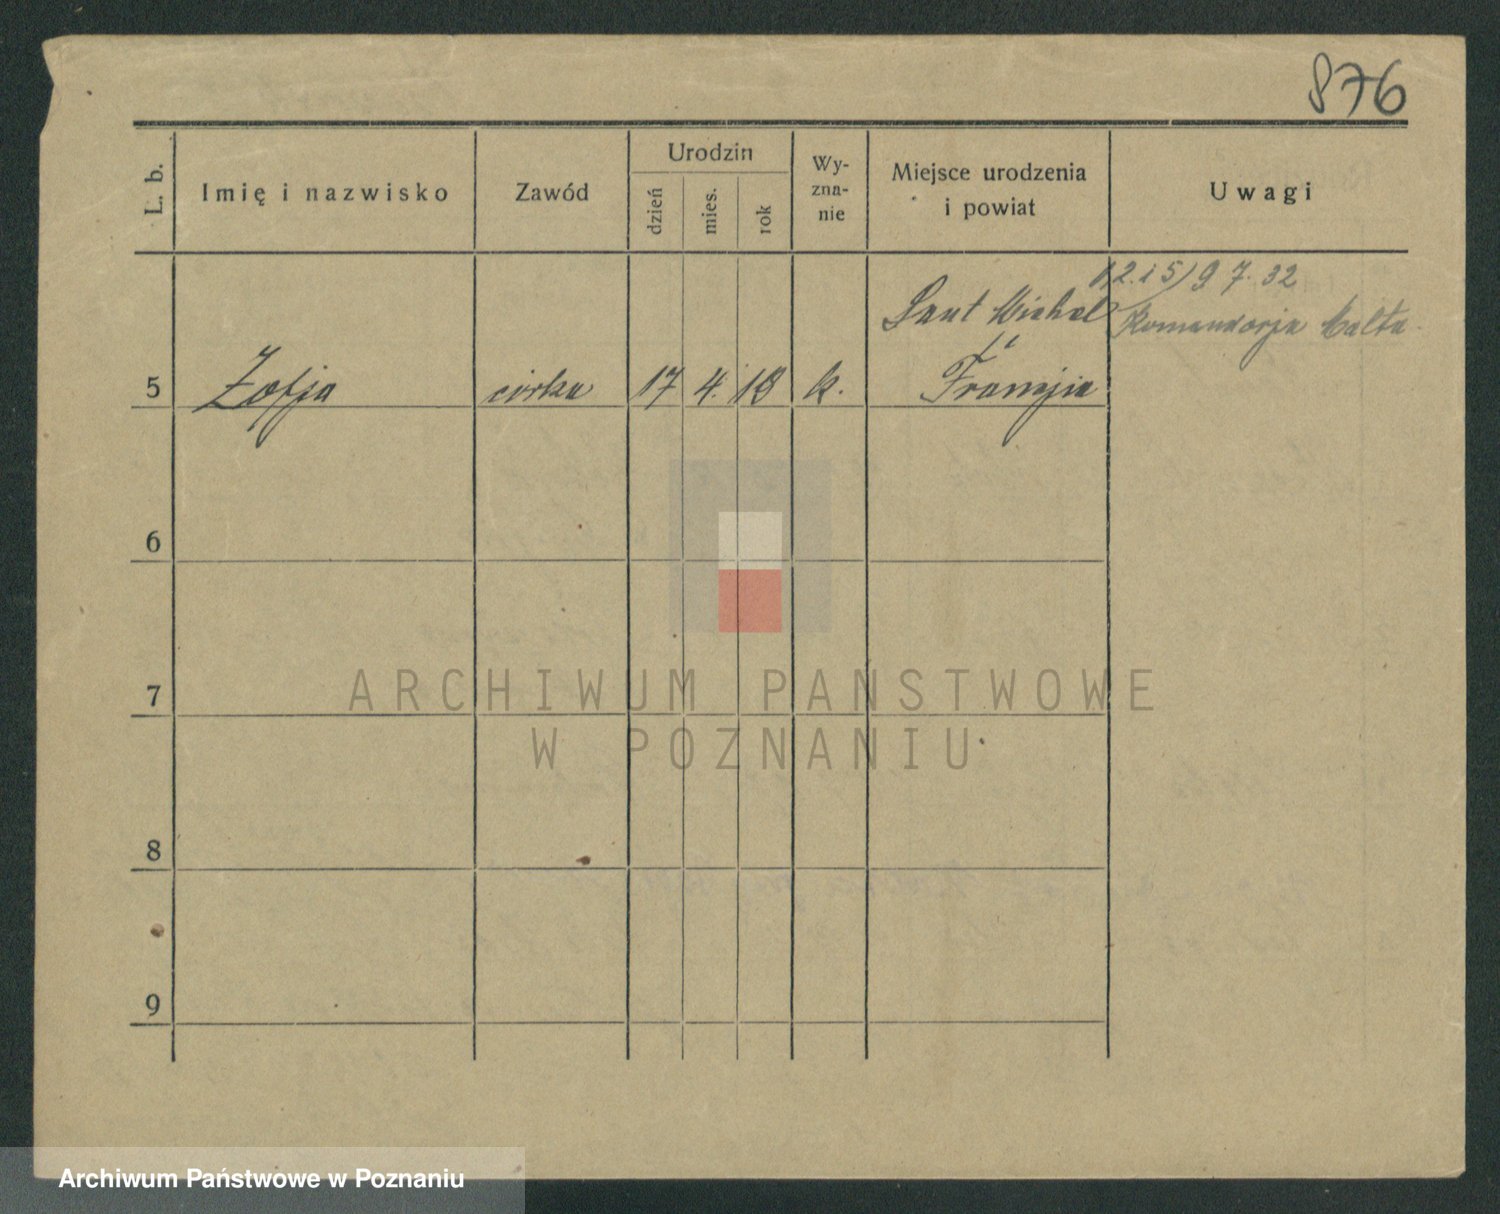 876
L. b.
Imię i nazwisko
Zawód
Urodzin
dzień
mies.
rok
Wy-
zna-
nie
Miejsce urodzenia
i powiat
Uwagi
1, 2. i 5) 9 7. 32
Komandorja Malta
Saut Michel
5 Zofja córka 17 4. 18 k. Francja
6
7
8
9
ARCHIWUM PAŃSTWOWE
W POZNANIU
Archiwum Państwowe w Poznaniu